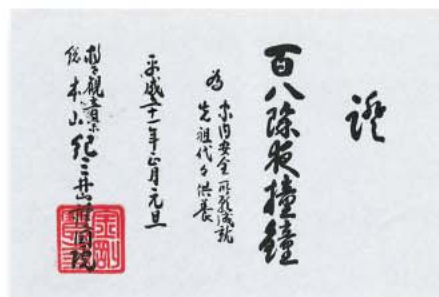 證
百八除夜撞鐘
為
家内安全所願成就
先祖代々供養
平成二十一年正月元旦
救世観音宗
総本山紀三井山護国院